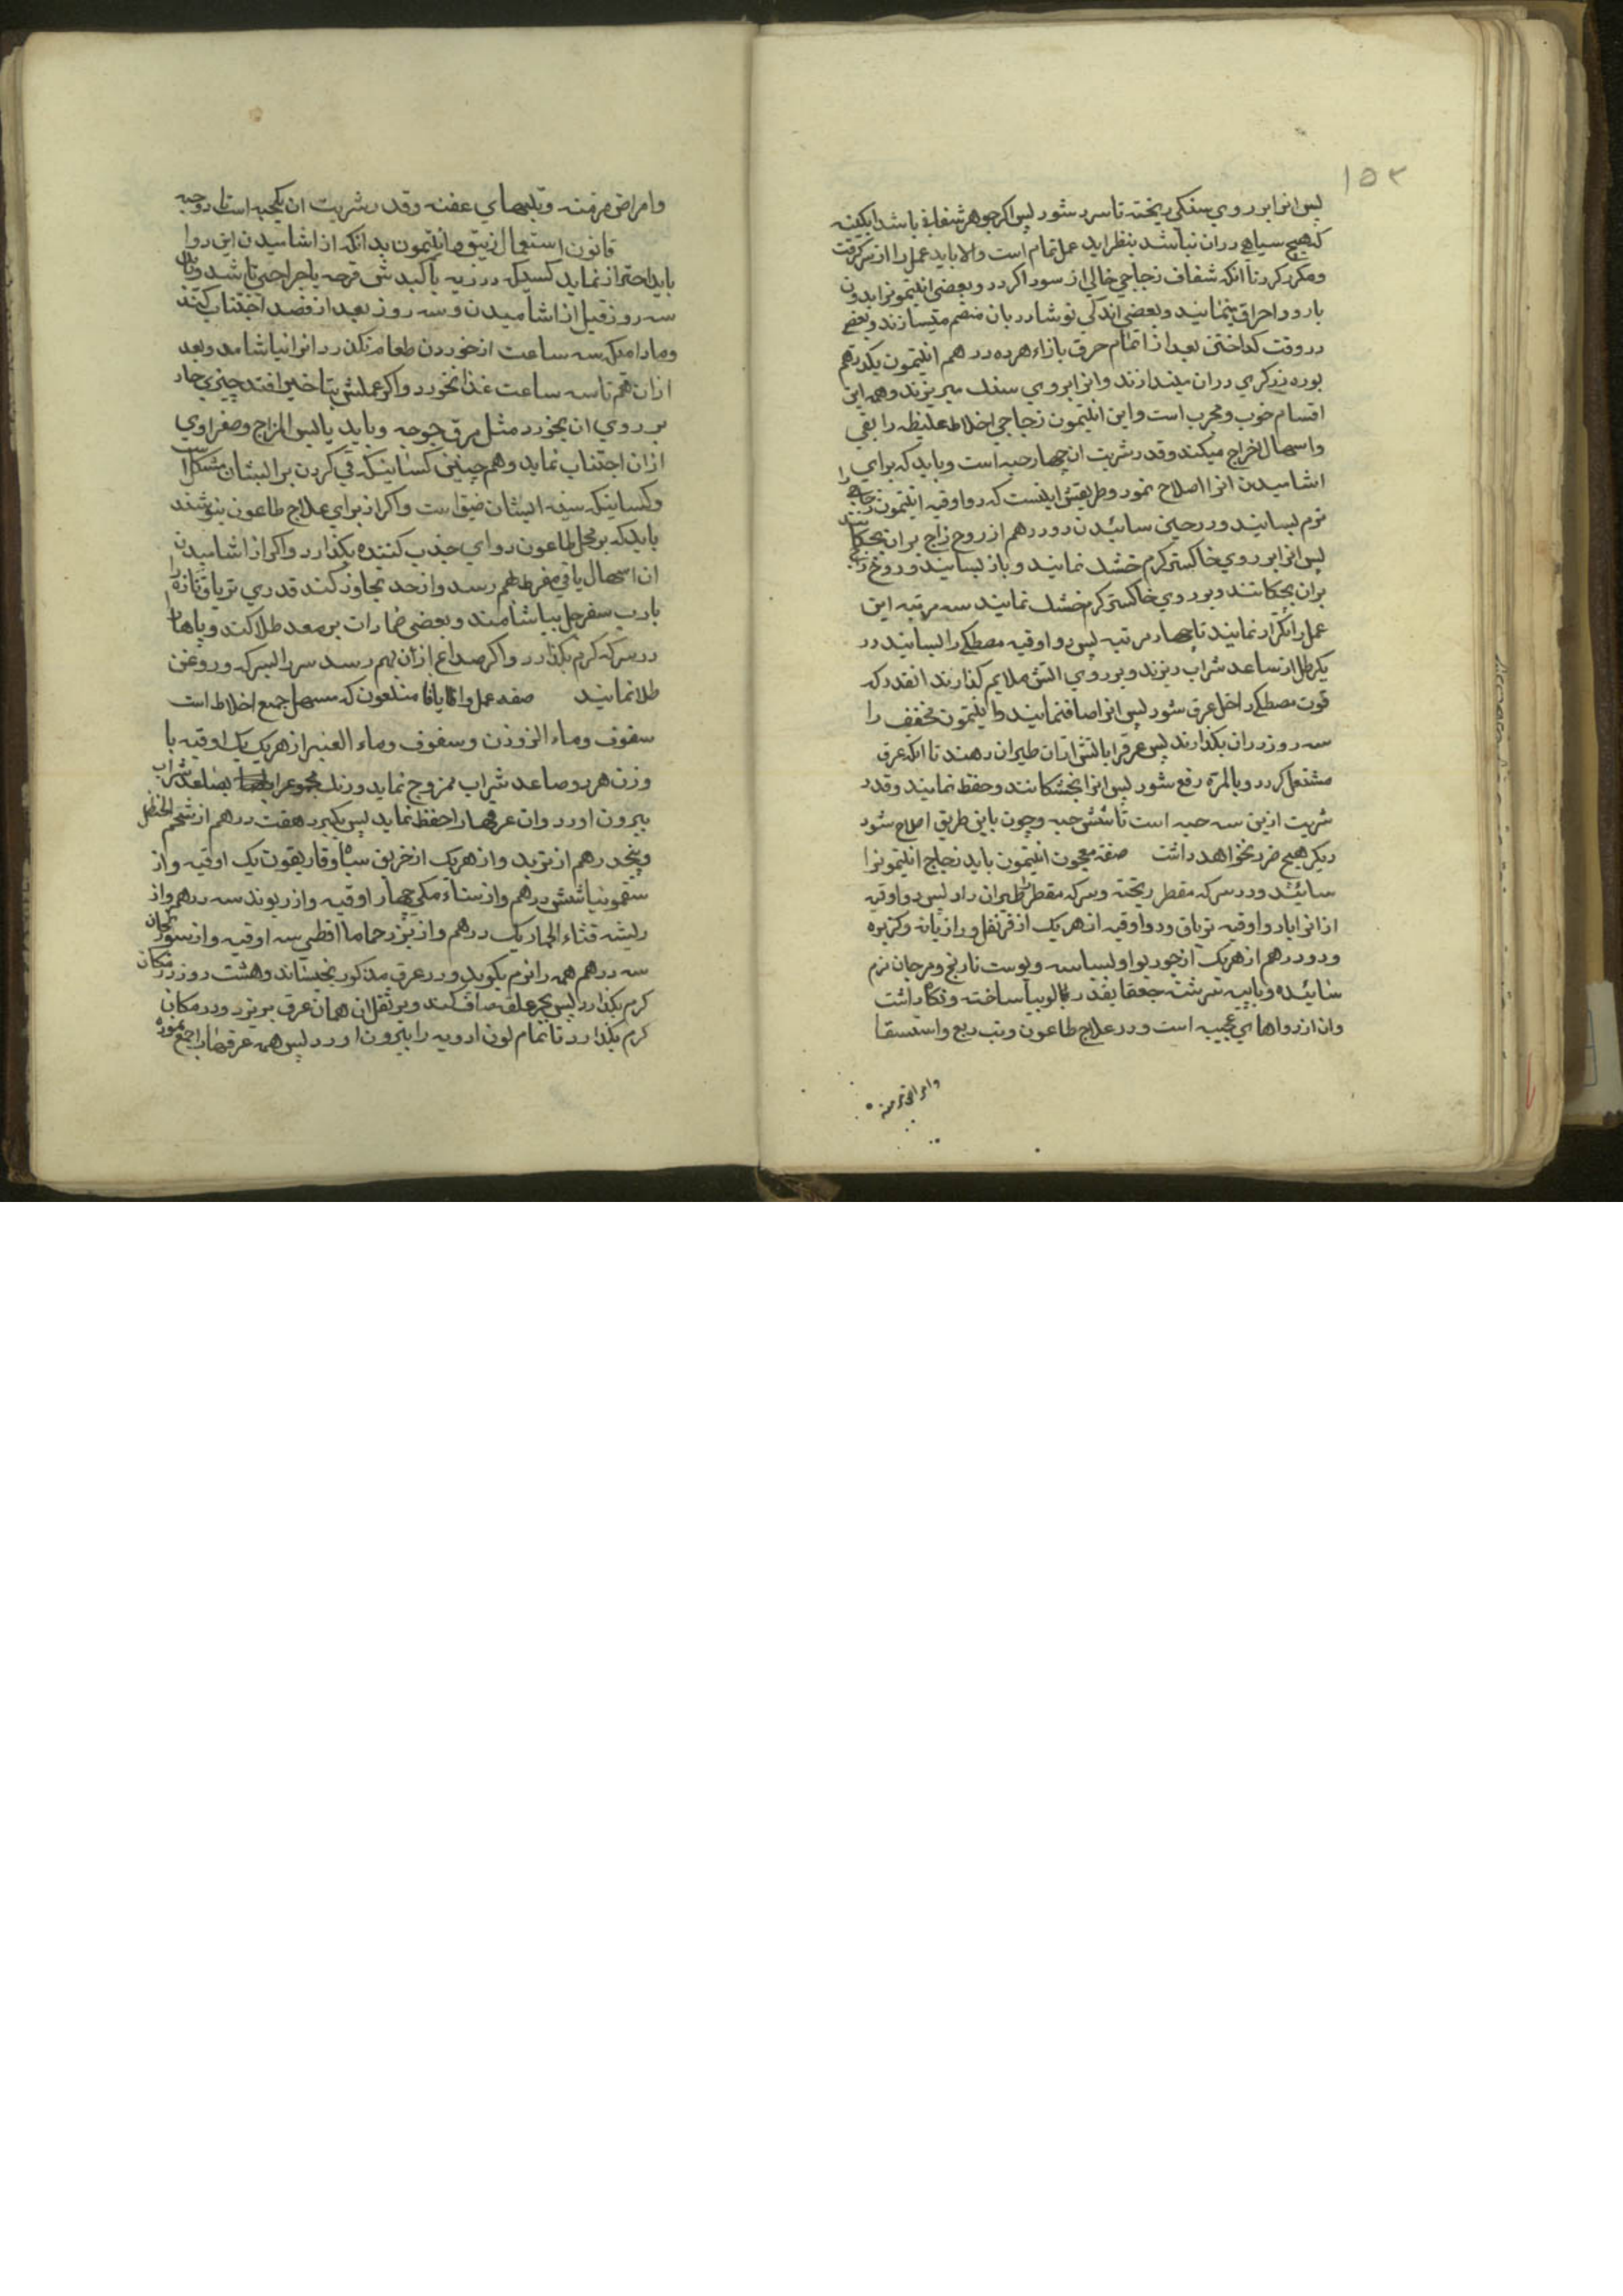 ۱۵۳
پس انرا بر روي سنكي ريخته تا سرد شود پس اكر جوهر شفافي باشد ابكينه
كه هيچ سياهي دران نباشد بنظر ايد عمل تمام است والا بايد عمل را از سر كرفت
ومكرر كرد تا انكه شفاف زجاجي خالي از سواد كردد وبعضي انتيمونرا بدون
بارود احراق مينمايند وبعضي اندكي نوشادر بان منضم ميسازند وبعضي
در وقت كداختن بعد از اتمام حرق بازاء هر ده درهم انتيمون يكدرهم
بوره زركري دران مياندازند وانرا بروي سنك ميريزند وهمه اين
اقسام خوب ومجرب است واين انتيمون زجاجي اخلاط غليظه را بقي
واسهال اخراج ميكند وقدر شربت ان چهار حبه است وبايد كه براي
اشاميدن انرا اصلاح نمود وطريقش اينست كه دو اوقيه انتيمون زجاجي را
نرم بسايند ودر حين سائيدن دو درهم از روح زاج بران بچكانند
پس انرا بر روي خاكستر كرم خشك نمايند وباز بسايند وروح زاج
بران بچكانند وبر روي خاكستر كرم خشك نمايند سه مرتبه اين
عمل را تكرار نمايند تا چهار مرتبه پس دو اوقيه مصطكي را بسايند در
يكرطل از صاعد شراب ريزند وبر روي اتش ملايم كذارند انقدر كه
قوت مصطكي داخل عرق شود پس انرا صاف نمايند وانيتمون مخفف را
سه روز دران بكذارند پس عرقرا باتش ازان طيران دهند تا انكه عرق
مشتعل كردد وبالمره رفع شود پس انرا بخشكانند وحفظ نمايند وقدر
شربت ازين سه حبه است تا شش حبه وچون باين طريق اصلاح شود
ديكر هيچ ضرر نخواهد داشت صفة معجون انتيمون بايد زجاج انتيمونرا
سائيد ودر سركه مقطر ريخته وسركه مقطر را طيران داد پس دو اوقيه
از انرا با دو اوقيه ترياق ودو اوقيه از هريك از قرنفل ورازيانه وكزبره
ودو درهم از هريك از جوز بوا وبسباسه وپوست نارنج ومرجان نرم
سائيده وبا بيه سرشته حبها بقدر لوبيا ساخته ونكاه داشت
وان از دواهاي عجيبه است ودر علاج طاعون وتب ربع واستسقا
وامراض مزمنه
وامراض مزمنه وتبهاي عفنه وقدر شربت ان يكحبه است تا دو حبه
قانون استعمال زيبق وانتيمون بدانكه از اشاميدن اين دوا
بايد احتراز نمايد كسيكه در ريه يا كبدش قرحه يا جراحتي باشد وبايد
سه روز قبل از اشاميدن وسه روز بعد از فصد اجتناب كنند
ومادام كه سه ساعت از خوردن طعام نكذرد انرا نياشامد وبعد
ازان هم تا سه ساعت غذا نخورد واكر عملش بتاخير افتد چيزي حار
بر روي ان بخورد مثل مرق جوجه وبايد يابس المزاج وصفراوي
ازان اجتناب نمايد وهم چنين كسانيكه قي كردن برايشان مشكل است
وكسانيكه سينه ايشان ضيق است واكر از براي علاج طاعون بنوشند
بايد كه بر محل طاعون دواي جذب كننده بكذارد واكر از اشاميدن
ان اسهال يا قي مفرط بهم رسد واز حد تجاوز كند قدري ترياق تازه را
با رب سفرجل بياشامند وبعضي ضمادات بر معده طلا كند وپاها را
در سركه كرم بكذارد واكر صداع ازان بهم رسد سر را بسركه وروغن
طلا نمايند صفه عمل منلعون كه مسهل جميع اخلاط است
سفوف وماء الزوزن وسفوف وماء العنبر از هريك يك اوقيه با
وزن هر دو صاعد شراب ممزوج نمايد ورنك مجموعرا بصاعد شراب
بيرون اورد وان عرقها را حفظ نمايد پس بكيرد هفت درهم از شحم الحنظل
وپنجدرهم از تربد واز هريك از خربق سياه وغاريقون يك اوقيه واز
سقمونيا شش درهم واز سناء مكي چهار اوقيه واز ريوند سه درهم واز
ريشه قثاء الحمار يك درهم واز بزر حماما اقطي سه اوقيه واز سورنجان
سه درهم همه را نرم بكوبد ودر عرق مذكور بخيساند وهشت روز در مكان
كرم بكذارد پس بجر علقه صاف كند وبر ثقل ان همان عرق بريزد ودر مكان
كرم بكذارد تا تمام لون ادويه را بيرون اورد پس همه عرقها را جمع نموده